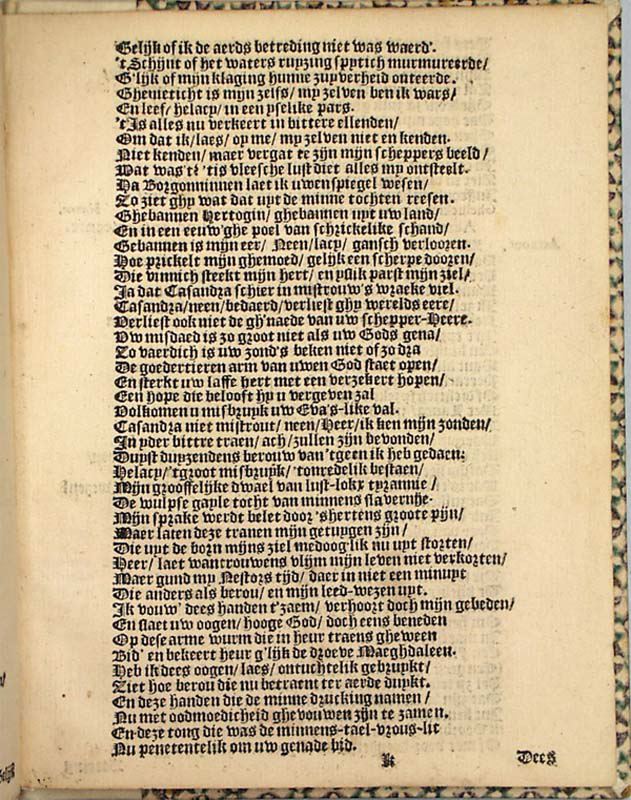 Gelijk of ik de aerds betreding niet was waerd'.
't Schijnt of het waters ruyzing spytich murmureerde/
G'lijk of mijn klaging hunne zuyverheid onteerde.
Ghevieticht is mijn zelfs/ my zelven ben ik wars/
En leef/ helacy/ in een yselike pars.
't Is alles nu verkeert in bittere ellenden/
Om dat ik/ laes/ oy me/ my zelven niet en kenden.
Niet kenden/ maer vergat te zijn mijn scheppers beeld/
Wat was 't? 'tis vleesche lust diet alles my ontsteelt.
Ha Borgonninnen laet ik uwen spiegel wesen/
Zo ziet ghy wat dat uyt de minne tochten reesen.
Ghebannen Hertogin/ ghebannen uyt uw land/
En in een eeuw'ghe poel van schrickelike schand/
Gebannen is mijn eer/ Neen/ lacy/ gansch verlooren.
Hoe prickelt mijn ghemoed/ gelijk een scherpe dooren/
Die vinnich steekt mijn hert/ en yslik parst mijn ziel/
Ja dat Casandra schier in mistrouw's wraeke viel.
Casandra/ neen/ bedaerd/ verliest ghy werelds eere/
Verliest ook niet de gh'naede van uw schepper-Heere.
Uw misdaed is zo groot niet als uw Gods gena/
Zo vaerdich is uw zond's beken niet of zo dra
De goedertieren arm van uwen God staet open/
En sterkt uw laffe hert met een verzekert hopen/
Een hope die belooft hy u vergeven zal
Volkomen u misbruyk uw Eva's-like val.
Casandra niet mistrout/ neen/ Heer/ ik ken mijn zonden/
In yder bittre traen/ ach/ zullen zijn bevonden/
Duyst duyzendens berouw van 'tgeen ik heb gedaen:
Helacy/ 'tgroot misbruyk/ 'tonredelik bestaen/
Mijn grooffelijke dwael van lust-lokx tyrannie/
De wulpse gayle tocht van minnens slavernye.
Mijn sprake werdt belet door 'shertens groote pijn/
Maer laten deze tranen mijn getuygen zijn/
Die uyt de born mijns ziel medoog'lik nu uyt storten/
Heer/ laet wantrouwens vlijm mijn leven niet verkorten/
Maer gund my Nestors tijd/ daer in niet een minuyt
Die anders als berou/ en mijn leed-wezen uyt.
Ik vouw' dees handen t'zaem/ verhoort doch mijn gebeden/
En slaet uw oogen/ hooge God/ doch eens beneden
Op dese arme wurm die in heur traens gheween
Bid' en bekeert heur g'lijk de droeve Maeghdaleen.
Heb ik dees oogen/ laes/ ontuchtelik gebruykt/
Ziet hoe berou die nu betraent ter aerde duykt.
En deze handen die de minne drucking namen/
Nu met oodmoedicheid ghevouwen zijn te zamen.
En deze tong die was de minnens-tael-vrous-lit
Nu penetentelik om uw genade bid.
k Dees